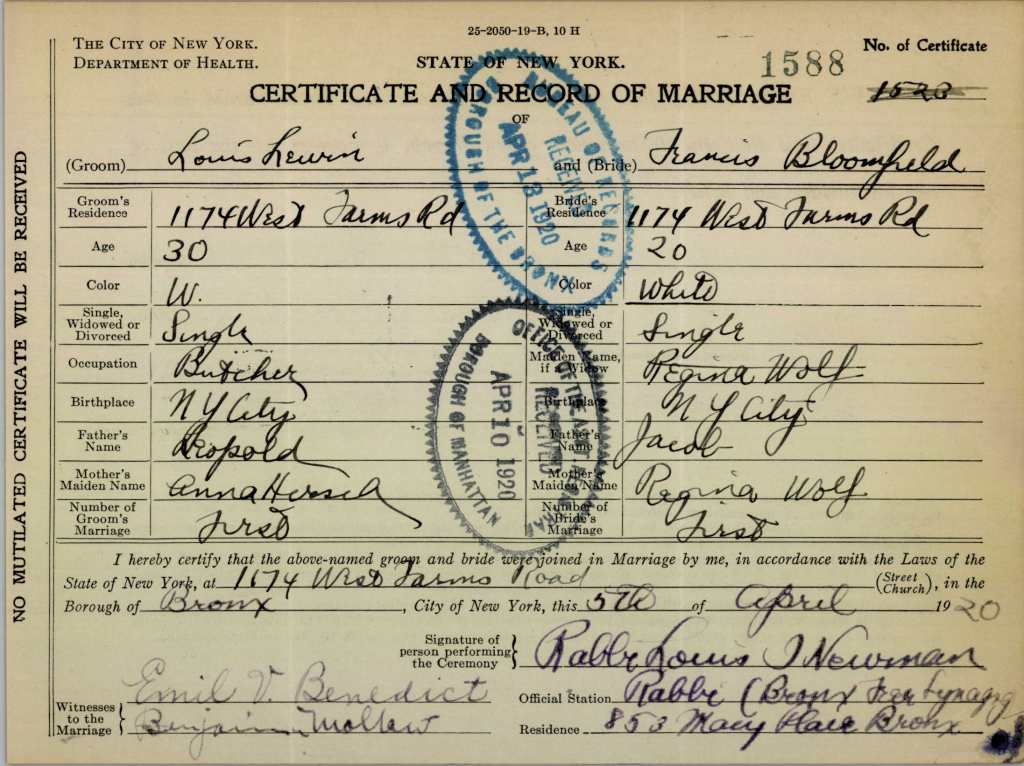 25-2050-19-B, 10 H
THE CITY OF NEW YORK.
DEPARTMENT OF HEALTH.
STATE OF NEW YORK.
No. of Certificate
1588
1523
CERTIFICATE AND RECORD OF MARRIAGE
OF
(Groom) Louis Lewin and (Bride) Francis Bloomfield
Groom's Residence 1174 West Farms Rd Bride's Residence 1174 West Farms Rd
Age 30 Age 20
Color W. Color White
Single, Widowed or Divorced Single Single, Widowed or Divorced Single
Occupation Butcher Maiden Name, if a Widow Regina Wolf
Birthplace N Y City Birthplace N Y City
Father's Name Leopold Father's Name Jacob
Mother's Maiden Name Anna Mother's Maiden Name Regina Wolf
Number of Groom's Marriage First Number of Bride's Marriage First
I hereby certify that the above-named groom and bride were joined in Marriage by me, in accordance with the Laws of the
State of New York, at 1174 West Farms Road (Street Church), in the
Borough of Bronx, City of New York, this 5th of April 1920
Signature of person performing the Ceremony Rabbi Louis I Newman
Official Station Rabbi (Bronx Free Synagog
Residence 853 Macy Place Bronx
Witnesses to the Marriage Emil V. Benedict
Benjamin
NO MUTILATED CERTIFICATE WILL BE RECEIVED
BUREAU OF RECORDS
RECEIVED
APR 13 1920
BOROUGH OF THE BRONX
OFFICE OF THE ASST REGISTRAR
RECEIVED
APR 10 1920
BOROUGH OF MANHATTAN